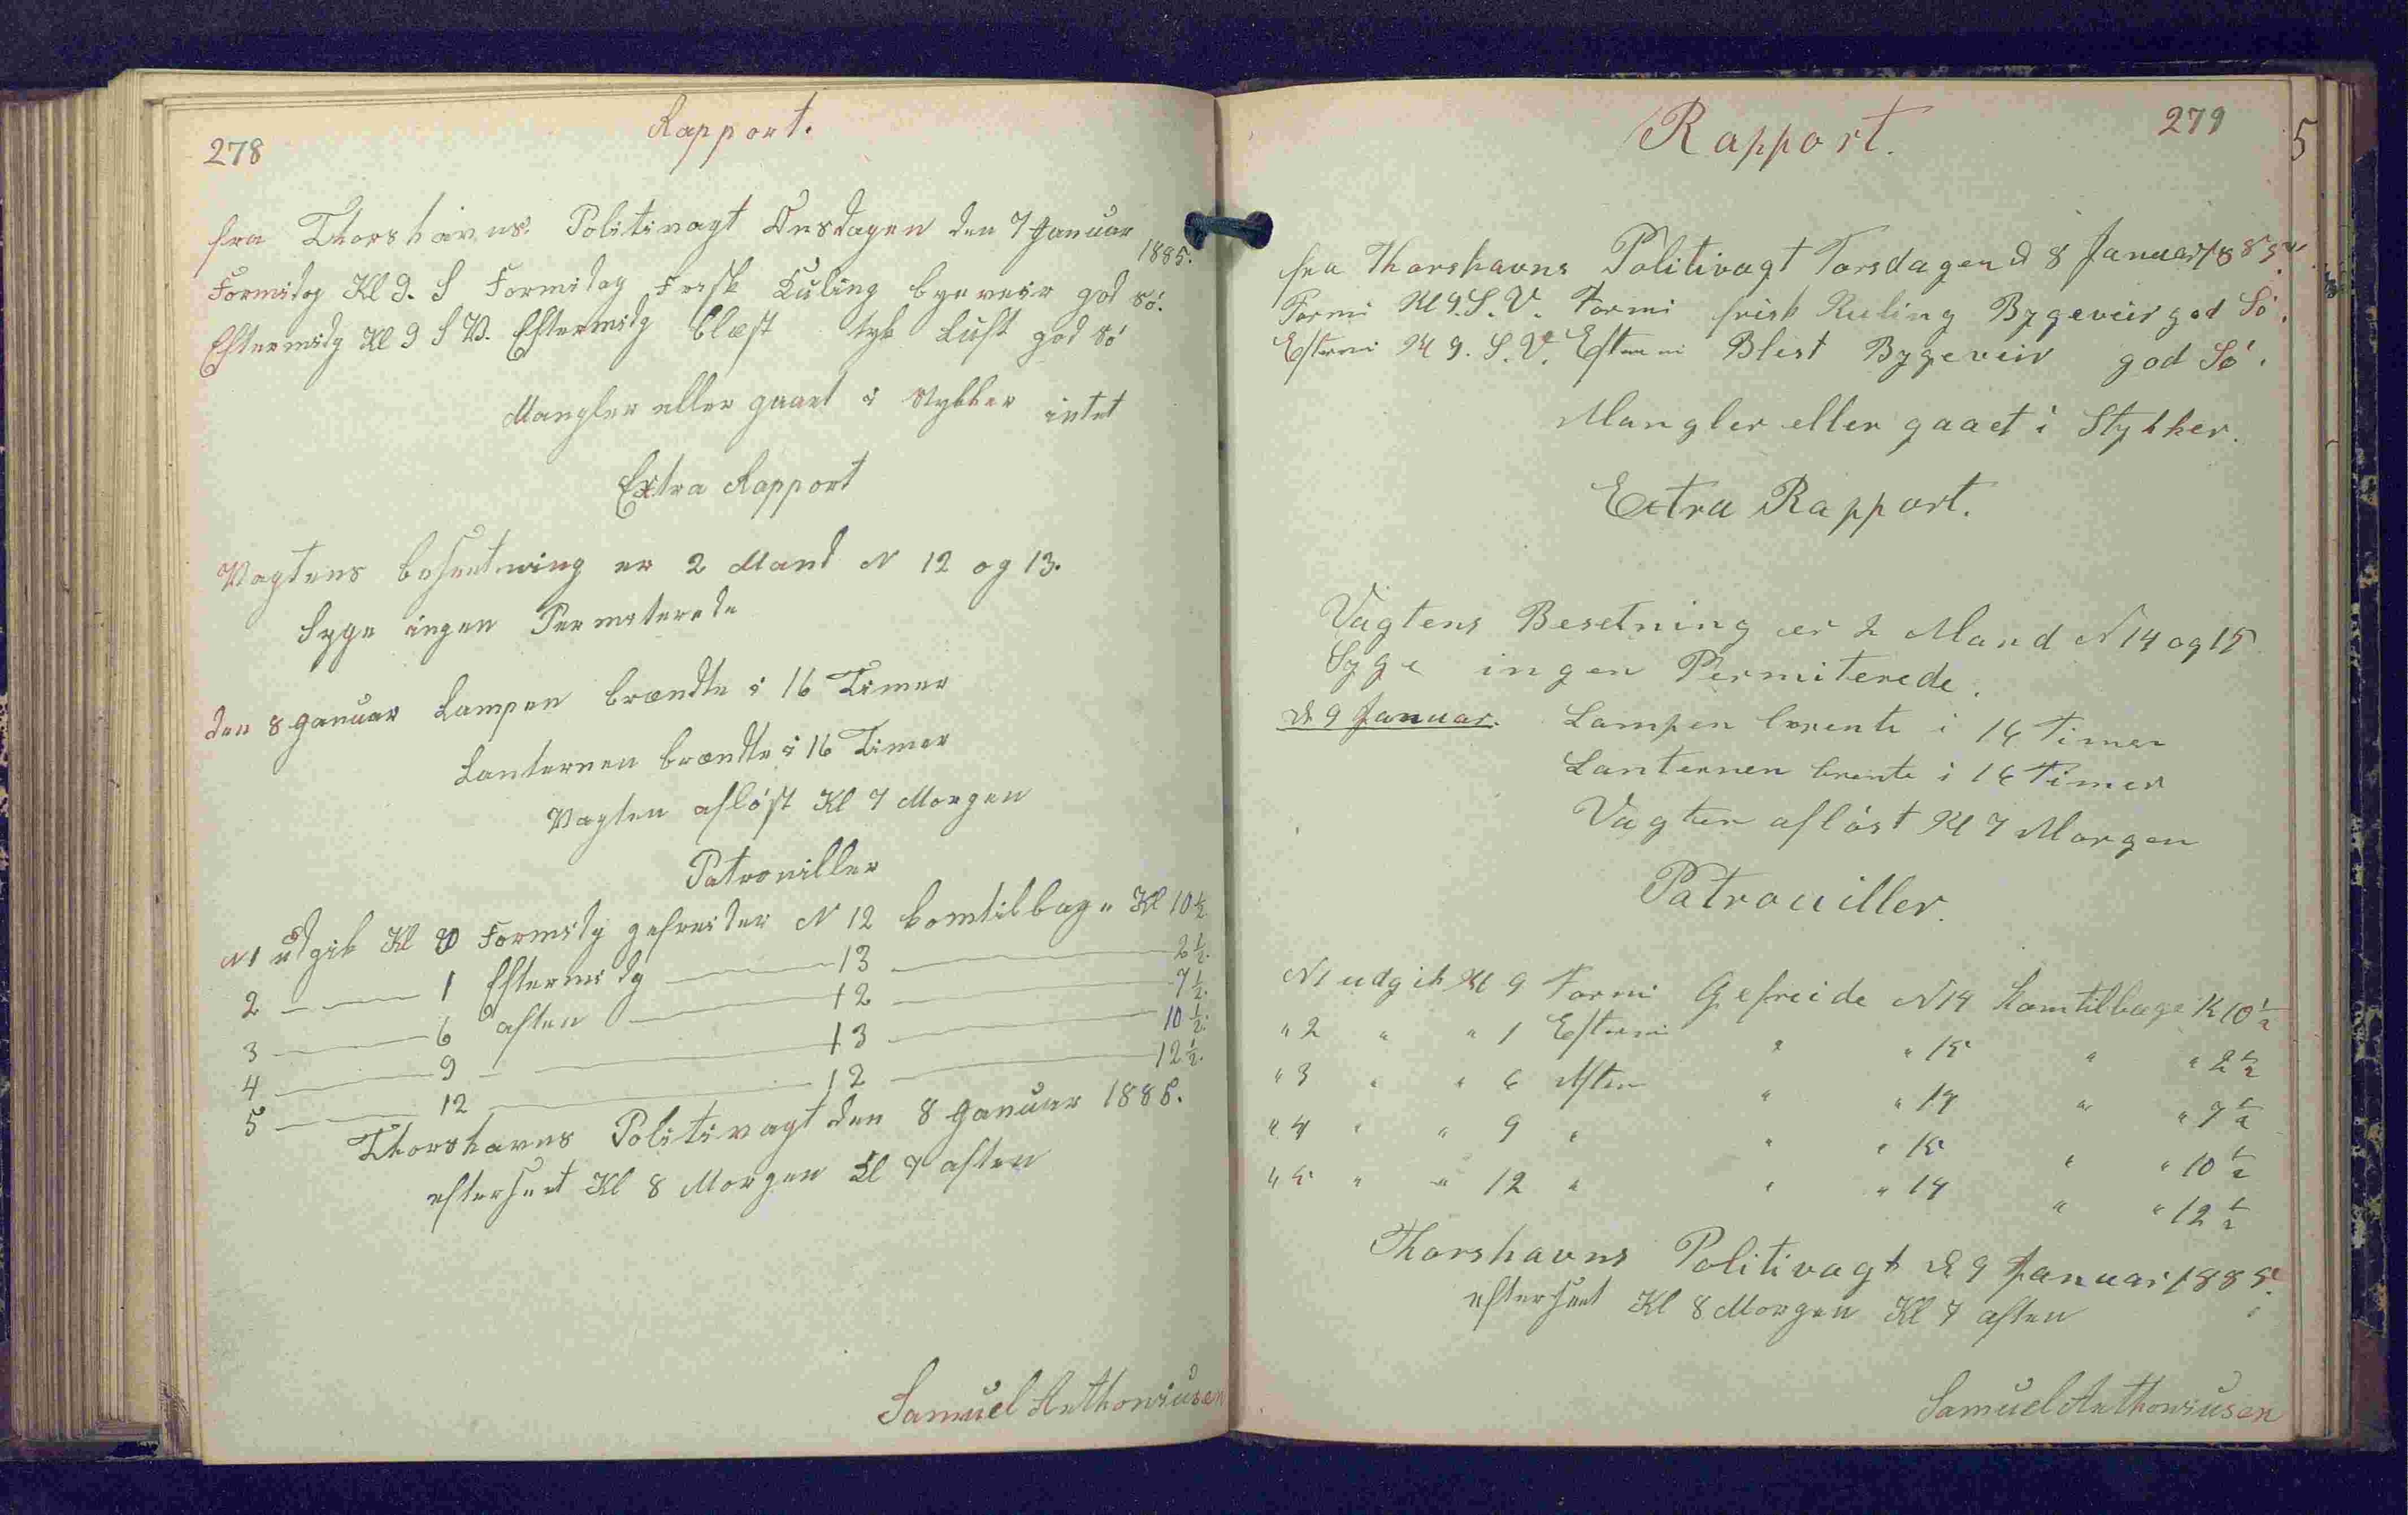 278
Rapport.
fra Thorshavns Politivagt Onsdagen den 7 Januar 1885.
Formidag Kl 9. S Formidag Frisk Kuling bygeveir god Sö.
Eftermidg Kl 9 S V. Eftermidg Blæst tyk Luft god Sö
Mangler eller gaaet i Stykker intet
Extra Rapport
Vagtens besætning er 2 Mand N 12 og 13.
Syge ingen Permiterede
den 8 Januar Lampen brændte i 16 Timer
Lanternen brændte i 16 Timer
Vagten aflöst Kl 7 Morgen
Patrouiller
N 1 udgik Kl 9 Formidg gefreider N 12 komtilbage Kl 10½
2 — 1 Eftermidg — 13 — 2½.
3 — 6 aften — 12 — 7½.
4 — 9 — 13 — 10½.
5 — 12 — 12 — 12½.
Thorshavns Politivagt den 8 Januar 1885.
efterseet Kl 8 Morgen Kl 7 aften
Samuel Anthoniusen
279
5
Rapport.
fra Thorshavns Politivagt Torsdagen d 8 Januar 1885.
Formi Kl 9. S. V. Formi frisk Kuling Bygeveir god Sö.
Eftermi Kl 9. S. V. Eftermi Blest Bygeveir god Sö.
Mangler eller gaaet i Stykker.
Extra Rapport.
Vagtens Besetning er 2 Mand N 14 og 15
Syge ingen Permiterede.
d. 9 Januar. Lampen brente i 16 Timer
Lanternen brente i 16 Timer
Vagten aflöst Kl 7 Morgen
Patrouiller.
N1 udgik Kl 9 Formi Gefreide N 14 komtilbage K 10½
" 2 " " 1 Eftermi " " 15 " " 2½
" 3 " " 6 Aften " " 14 " " 7½
" 4 " " 9 " " " 15 " " 10½
" 5 " " 12 " " " 14 " " 12½
Thorshavns Politivagt d. 9 Januar 1885.
efterseet Kl 8 Morgen Kl 7 aften
Samuel Anthoniusen